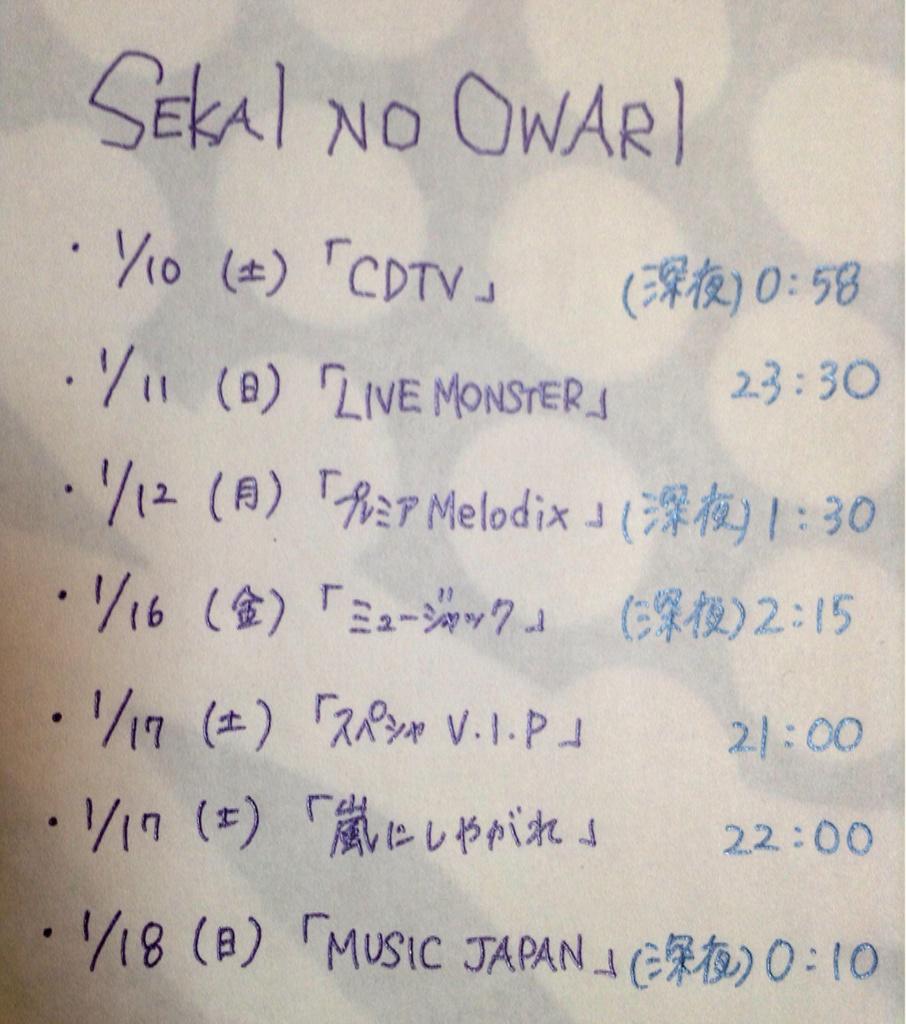 SEKAI NO OWARI
・1/10 (土) 「CDTV」 (深夜) 0:58
・1/11 (日) 「LIVE MONSTER」 23:30
・1/12 (月) 「プレミアMelodix」 (深夜) 1:30
・1/16 (金) 「ミュージャック」 (深夜) 2:15
・1/17 (土) 「スペシャV.I.P」 21:00
・1/17 (土) 「嵐にしやがれ」 22:00
・1/18 (日) 「MUSIC JAPAN」 (深夜) 0:10